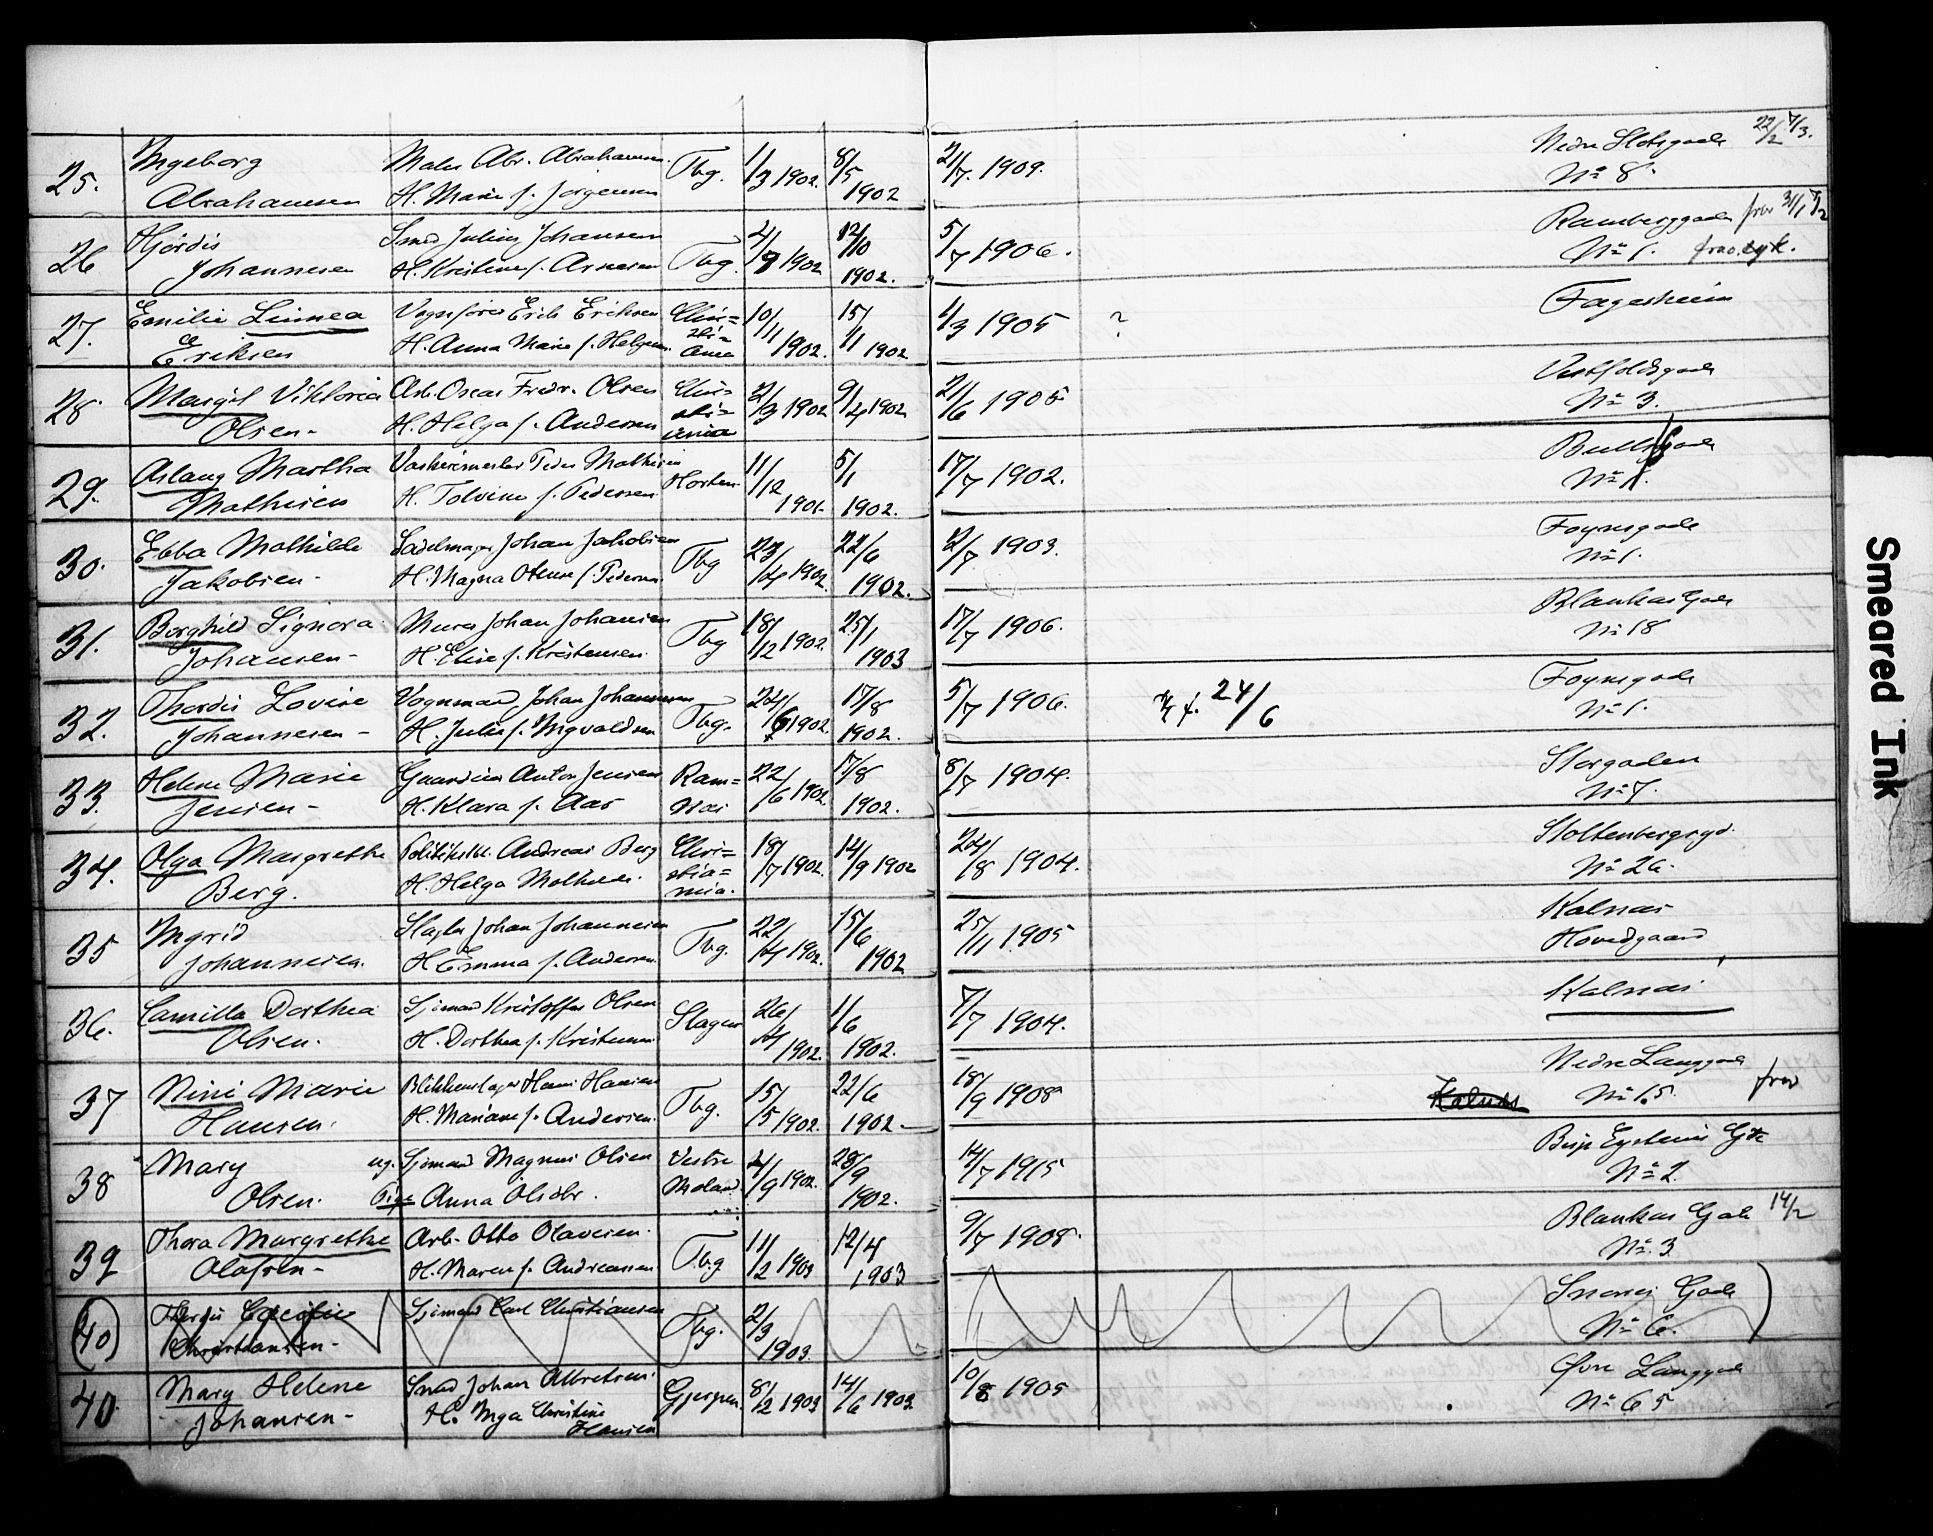 25. Ingeborg Maler Abr. Abrahamsen Tbg. 1/3 1902. 8/5 21/7. 1909. Nedre Slotsgade 22/2 7/3.
Abrahamsen H. Marie f. Jørgensen 1902 No 8.
26 Hjördis Smed Julius Johansen Tbg. 2/9 1902 12/10 5/7 1906. Rambergsgade frav 31/1 7/2
Johannesen H. Kristine f. Arnesen 1902. No 1. frav. syk.
27. Emilie Linnea Vognfører Erik Eriksen Chri= 10/11 15/11 1/3 1905 ? Fagerheim
Eriksen H. Anna Marie f. Helgesen sti= ania 1902. 1902
28. Margit Viktoria Arb. Oscar Fredr. Olsen Chri= 2/3 1902 9/4 1902 2/6 1905 Vestfoldsgade
Olsen- H. Helga f. Andersen sti= ania No 3.
29. Aslaug Martha Peder Mathisen Horten 11/12 5/1 17/7 1902. Bullsgade
Mathisen H. Tolvine f. Pedersen 1901. 1902. No 1.
30. Ebba Mathilde Sadelmager Johan Jakobsen Tbg 23/4 1902. 22/6 2/7 1903. Foynsgade
Jakobsen- H. Magna Othene f. Pedersen 1902. No 1.
31. Borghild Signora Murer Johan Johansen Tbg 18/12 1902. 25/1 17/7 1906. Blankas Gade
Johansen- H. Elise f. Kristensen. 1903 No 18
32. Thordis Lovise Vognmand Johan Johannesen Tbg. 24/6 1902. 17/8 5/7 1906. 24/6 Foynsgade
Johannesen- H. Julie f. Ingvaldsen 1902. No 1.
33. Helene Marie Anton Jensen Ram= 22/6 1902. 17/8 8/7 1904. Storgaden
Jensen- H. Klara f. Aas næs 1902. No 7.
34. Olga Margrethe Andreas Berg Chri= 18/7 1902. 14/9 1902 24/8 1904. Stoltenbergsgd.
Berg. H. Helga Mathilde. stia= nia. No 26.
35 Ingrid Slagter Johan Johannesen Tbg. 22/4 1902. 15/6 25/11 1905 Kalnæs
Johannesen. H. Emma f. Andersen. 1902 Hovedgaard
36. Camilla Dorthea Sjömand Kristoffer Olsen Slagen 26/4 1/6 7/7 1904. Kalnæs
Olsen. H. Dorthea f. Kristensen 1902. 1902.
37 Nini Marie Blikkenslager Hans Hansen Tbg. 15/5 22/6 18/9 1908 Nedre Langgade frav
Hansen. H. Mariane f. Andersen. 1902. 1902- Kalnæs No 15.
38 Mary ug. Sjömand Magnus Olsen Vestre 4/9 1902. 28/9 14/7 1915 Bisp Eysteins Gte
Olsen. Pige Anna Olsdtr. Moland 1902. No 2.
39 Thora Margrethe Arb. Otto Olavesen. Tbg 11/2 1903 12/4 9/7 1908. Blankas Gade 14/2
Olafsen- H. Maren f. Andreassen 1903 No 3.
(40) Sjömand Carl Christiansen Tbg. 2/3 Snorres Gade
Christiansen- 1903. No 6.
40. Mary Helene Smed Johan Gjerpen 8/2 1903 14/6 1903 10/8 1905 Øvre Langgade
Johansen- H. Inga Christine Hansen No 65
Smeared Ink